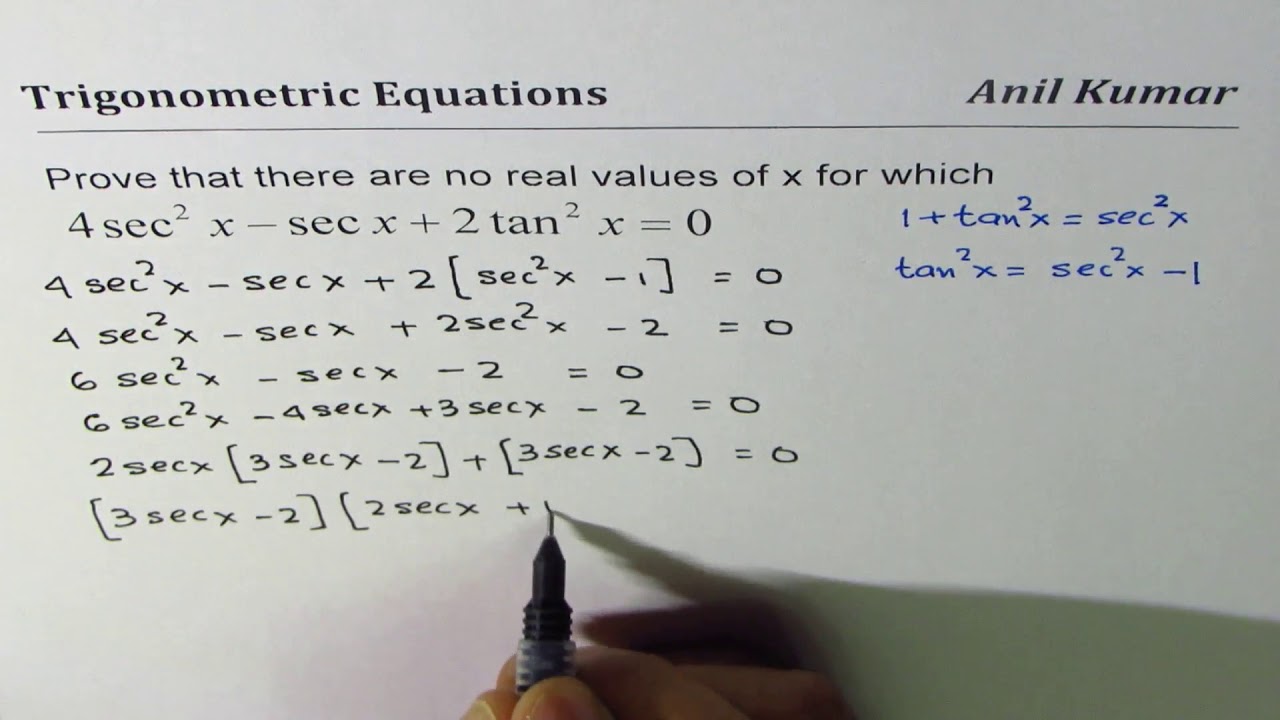 Trigonometric Equations Anil Kumar
Prove that there are no real values of x for which
4 sec² x − sec x + 2 tan² x = 0
1 + tan²x = sec²x
4 sec²x − sec x + 2 [sec²x − 1] = 0
tan²x = sec²x − 1
4 sec²x − sec x + 2sec²x − 2 = 0
6 sec²x − secx − 2 = 0
6 sec²x − 4secx + 3 secx − 2 = 0
2 secx [3 secx − 2] + [3 secx − 2] = 0
[3 secx − 2] [2 secx + 1